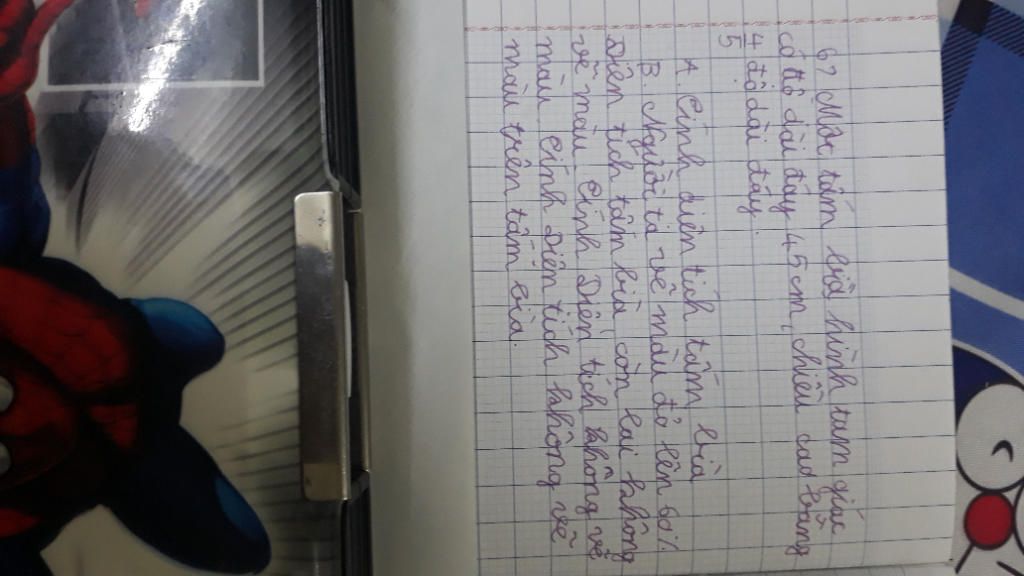 6? Một tấm bìa hình tam giác
có độ dài đáy 45 cm, chiều cao bằng
4/5 độ dài đáy.
A. Tính diện tích tấm bìa
B. Người ta vẽ màu đỏ lên 60%
Diện tích tấm bìa còn lại không
vẽ màu Tính Diện tích không vẽ
màu Tính Diện tích không vẽ
màu trên tấm bìa.